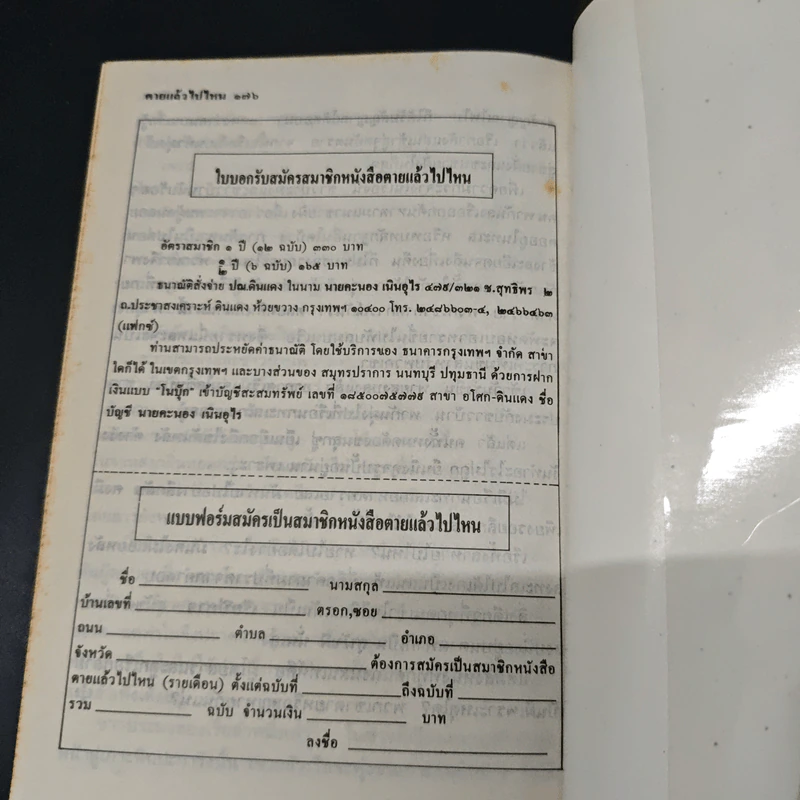 ตายแล้วไปไหน ๑๗๖
ใบบอกรับสมัครสมาชิกหนังสือตายแล้วไปไหน
อัตราสมาชิก ๑ ปี (๑๒ ฉบับ) ๓๓๐ บาท
ปี (๖ ฉบับ) ๑๖๕ บาท
ธนาณัติสั่งจ่าย ปณ.ดินแดง ในนาม นายคะนอง เนินอุไร ๔๗๙/๓๒๑ ซ.สุทธิพร ๒
ถ.ประชาสงเคราะห์ ดินแดง ห้วยขวาง กรุงเทพฯ ๑๐๔๐๐ โทร. ๒๔๘๖๖๐๓-๔, ๒๔๖๖๔๖๓
(แฟกซ์)
ท่านสามารถประหยัดค่าธนาณัติ โดยใช้บริการของ ธนาคารกรุงเทพฯ จำกัด สาขา
ใดก็ได้ ในเขตกรุงเทพฯ และบางส่วนของ สมุทรปราการ นนทบุรี ปทุมธานี ด้วยการฝาก
เงินแบบ "โนบุ๊ก" เข้าบัญชีสะสมทรัพย์ เลขที่ ๑๘๕๐๐๗๕๗๗๕ สาขา อโศก-ดินแดง ชื่อ
บัญชี นายคะนอง เนินอุไร
แบบฟอร์มสมัครเป็นสมาชิกหนังสือตายแล้วไปไหน
ชื่อ นามสกุล
บ้านเลขที่ ตรอก,ซอย
ถนน ตำบล อำเภอ
จังหวัด ต้องการสมัครเป็นสมาชิกหนังสือ
ตายแล้วไปไหน (รายเดือน) ตั้งแต่ฉบับที่ ถึงฉบับที่
รวม ฉบับ จำนวนเงิน บาท
ลงชื่อ